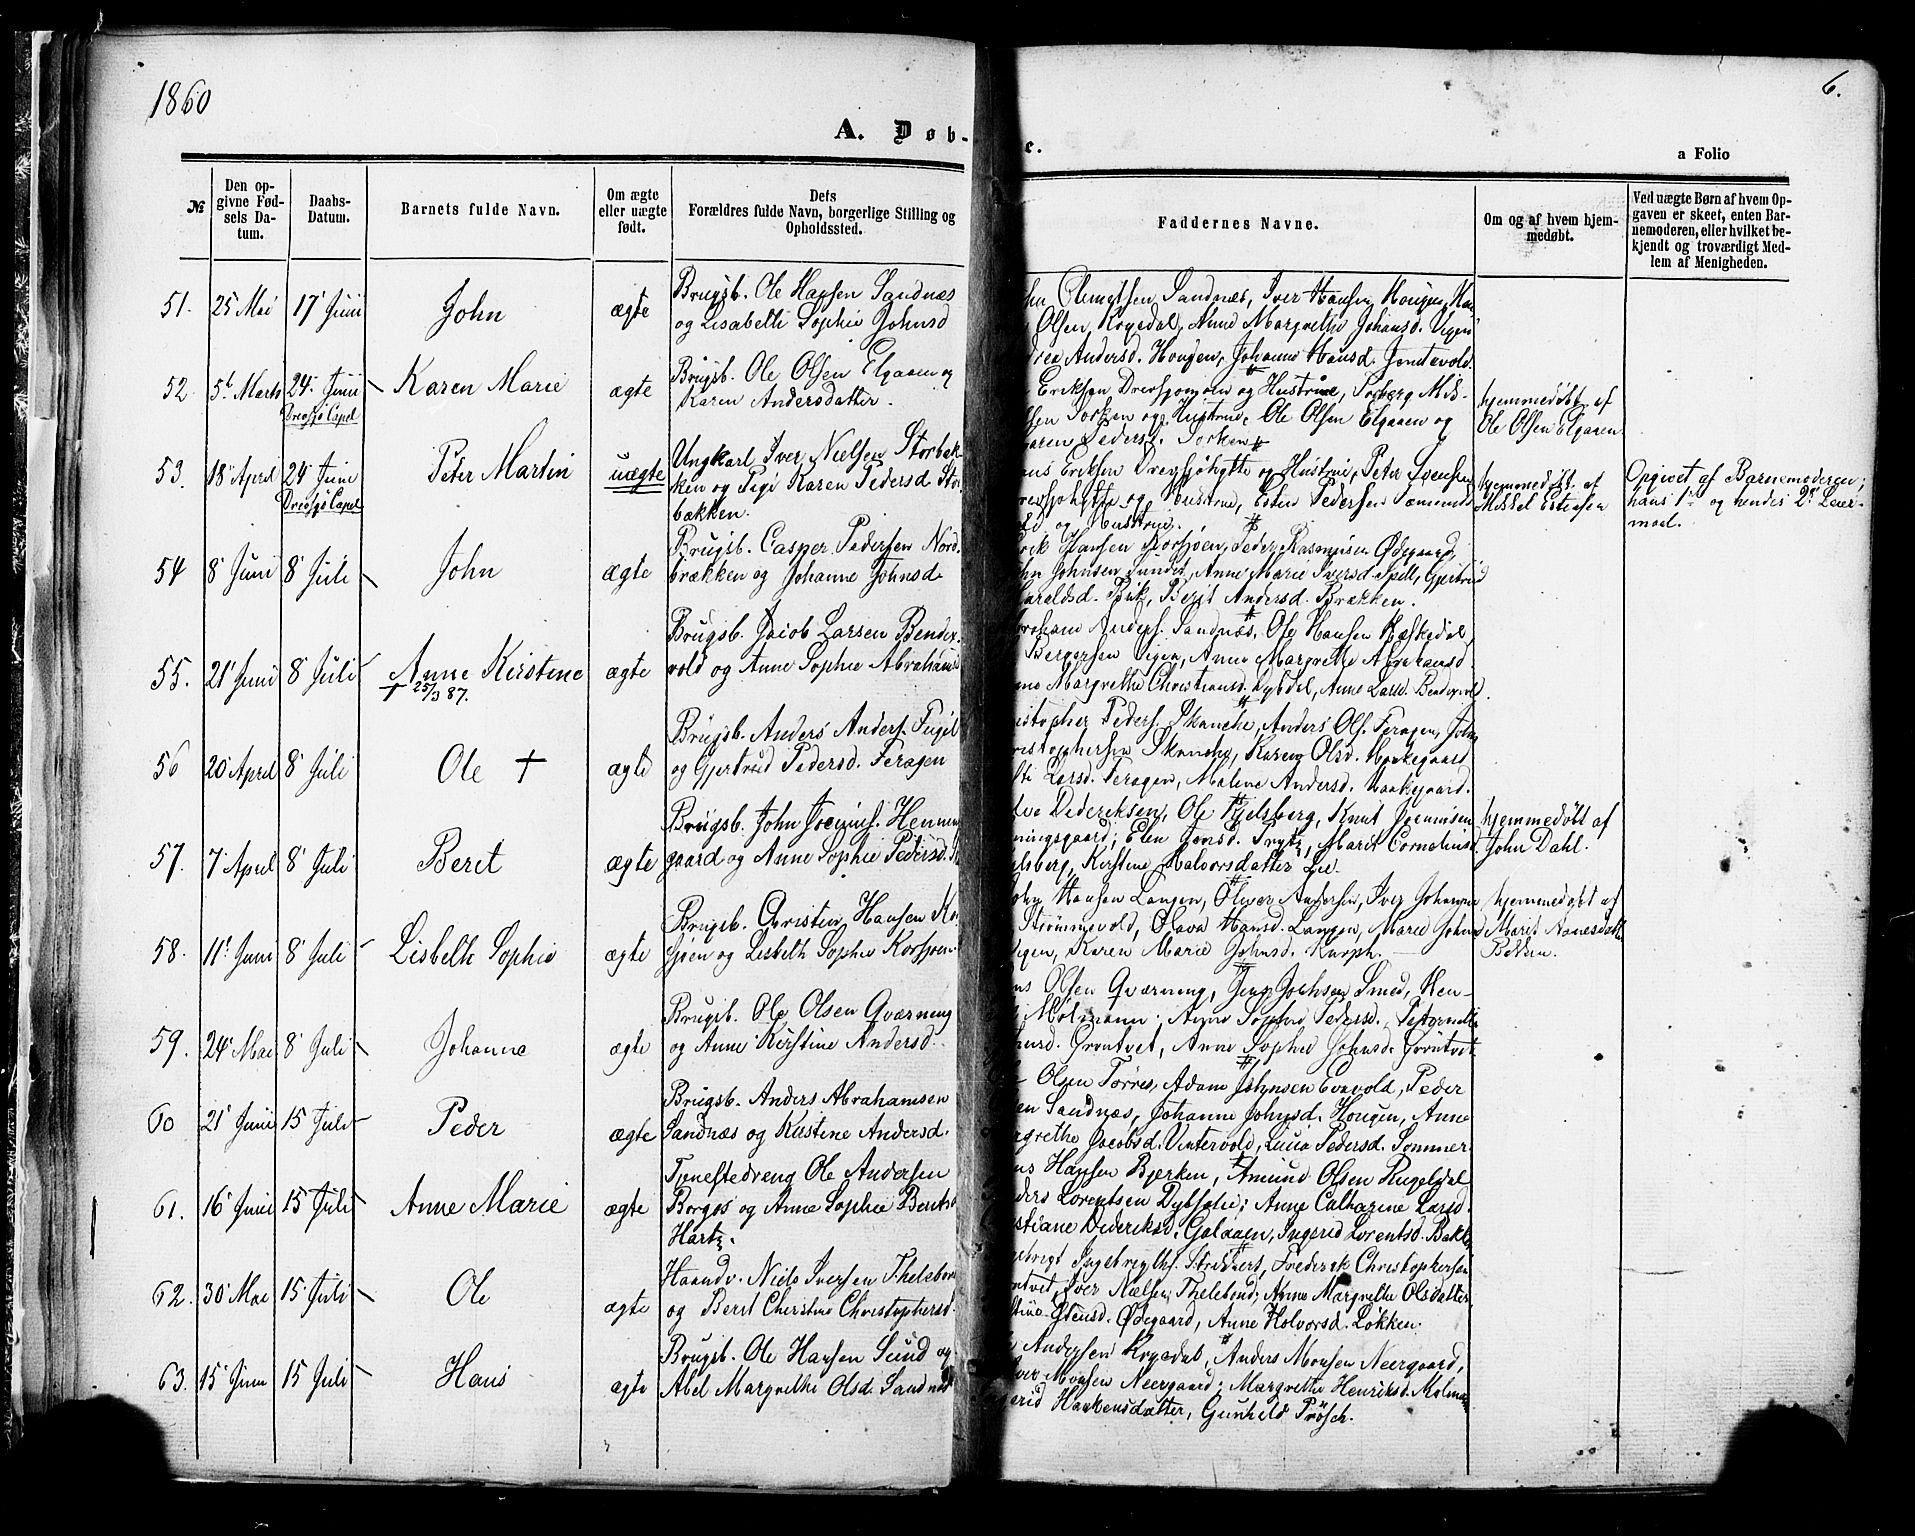 1860
6.
A. Døb-
e.
a Folio
№
Den op-
givne Fød-
sels Da-
tum.
Daabs-
Datum.
Barnets fulde Navn.
Om ægte
eller uægte
født.
Dets
Forældres fulde Navn, borgerlige Stilling og
Opholdssted.
Faddernes Navne.
Om og af hvem hjem-
medøbt.
Ved uægte Børn af hvem Op-
gaven er skeet, enten Bar-
nemoderen, eller hvilket be-
kjendt og troværdigt Med-
lem af Menigheden.
51. 25 Mai 17 Juni John ægte
Brugsb. Ole Hansen Sandnæs
og Lisabeth Sophie Johnsd
Clemetsen Sandnæs, Iver Hansen Hougen,
Olsen Krogedal, Anne Margrethe Johansd.
Andersd. Hougen, Johanne Hansd. Jentevold
52 5t Marts 24. Juni Karen Marie ægte
Drevsjø Capel
Brugsb. Ole Olsen Elgaaen og
Karen Andersdatter.
Eriksen Drevsjømoen og Hustrue,
Sorken og Hustrue, Ole Olsen Elgaaen og
Pedersd. Sorken
hjemmedøbt af
Ole Olsen Elgaaen.
53. 18 April 24 Juni Peter Martin uægte
Drevsjø Capel
Ungkarl Iver Nielsen Storbæk-
ken og Pige Karen Pedersd Stor-
bækken.
Eriksen Drevsjøhytte og Hustrue, Peter Svensen
Drevsjøhytte og Hustrue, Esten Pedersen
og Hustrue.
hjemmedøbt af
Mikkel Estensen
Opgivet af Barnemoderen;
hans 1ste og hendes 2det Leier-
maal.
54 8 Juni 8 Juli John ægte
Brugsb. Casper Pedersen Nord-
brækken og Johanne Johnsd
Hansen Korsjøen, Peder Rasmusen Ødegaard,
Johnsen Sundet, Anne Marie Iversd Spell, Gjertrud
Haraldsd. Berit Andersd. Brækken.
55. 21 Juni 8 Juli Anne Kirstine ægte
+ 25/3 87.
Brugsb. Jacob Larsen Bendix-
vold og Anne Sophie Abrahamsd
Anders. Sandnæs, Ole Hansen
Bergersen Vigen, Anne Margrethe Abrahamsd.
Margrethe Christiansd. Dybdal, Anne Larsd. Bendixvold.
56 20 April 8 Juli Ole + ægte
Brugsb. Anders Anders. Fugel
og Gjertrud Pedersd. Feragen
Peders. Skancke, Anders Ols. Feragen, John
Christophersen Skancke, Karen Olsd. Haakegaard
Larsd. Feragen, Malene Andersd. Haakegaard.
57. 7 April 8 Juli Beret ægte
Brugsb. John Joenius. Hennings-
gaard og Anne Sophie Pedersd.
Dederiksen, Ole Kjelsberg, Knut Joeniusen
Henningsgaard; Elen Jonsd. Trytz, Marit Corneliusd.
Kjelsberg, Kirstine Halvorsdatter Lie.
hjemmedøbt af
John Dahl.
58. 11t Juni 8 Juli Lisbeth Sophie ægte
Brugsb. Christen Hansen Kor-
sjøen og Lisbeth Sophie Korsjøen.
Hansen Langen, Oliver Andersen, Iver Johannes.
Strømmevold, Olava Hansd. Langen, Marie Johnsd
Vigen, Karen Marie Johnsd. Knoph.
hjemmedøbt af
Marit Aanesdatter
Bekken.
59. 24 Mai 8 Juli Johanne ægte
Brugsb. Ole Olsen Qværning
og Anne Kirstine Andersd.
Olsen Qværning, Jens Jochsen Smed, Hen-
Molmann; Anne Sophie Pedersd. Petternelle
Hansd. Grøntvet, Anne Sophie Johnsd. Grøntvet
60 21 Juni 15 Juli Peder ægte
Brugsb. Anders Abrahamsen
Sandnæs og Kirstine Andersd.
Olsen Torres, Adam Johnsen Evavold, Peder
Sandnæs, Johanne Johnsd. Hougen, Anne
Margrethe Jacobsd. Vintervold, Lucia Pedersd. Sommer
61. 16 Juni 15 Juli Anne Marie ægte
Tjenestedreng Ole Andersen
Borgos og Anne Sophie Bentsd
Hartz.
Hansen Bjerken, Amund Olsen Rugeldal
Anders Lorentsen Dybfolie; Anne Catharine Larsd.
Christiane Dederiksd. Galaaen, Ingerid Lorentsd. Bakke
62. 30 Mai 15 Juli Ole ægte
Haandv. Niels Iversen Thelebond
og Berit Christine Christophersd.
Ingebrigths. Strickert, Frederik Christophersen
Grøntvet, Iver Nielsen Thelebond; Anne Margrethe Olsdatter
Stensd. Ødegaard, Anne Holvorsd. Løkken.
63. 15 Juni 15 Juli Hans ægte
Brugsb. Ole Hansen Sund og
Abel Margrethe Olsd Sandnæs
Andersen Krogedal, Anders Monsen Neergaard,
Iver Monsen Neergaard; Margrethe Henriksd. Molmann
Haakensdatter, Gunhild Prøsch.